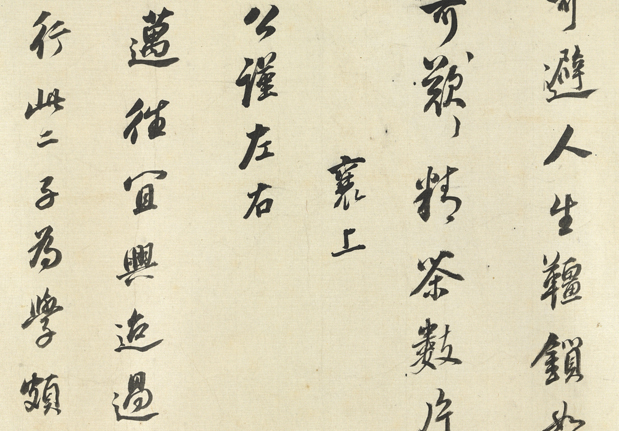 可避人生韁鎖如
可歎〻精茶數片
襄上
公謹左右
邁往宜興迨過
行此二子為學頗